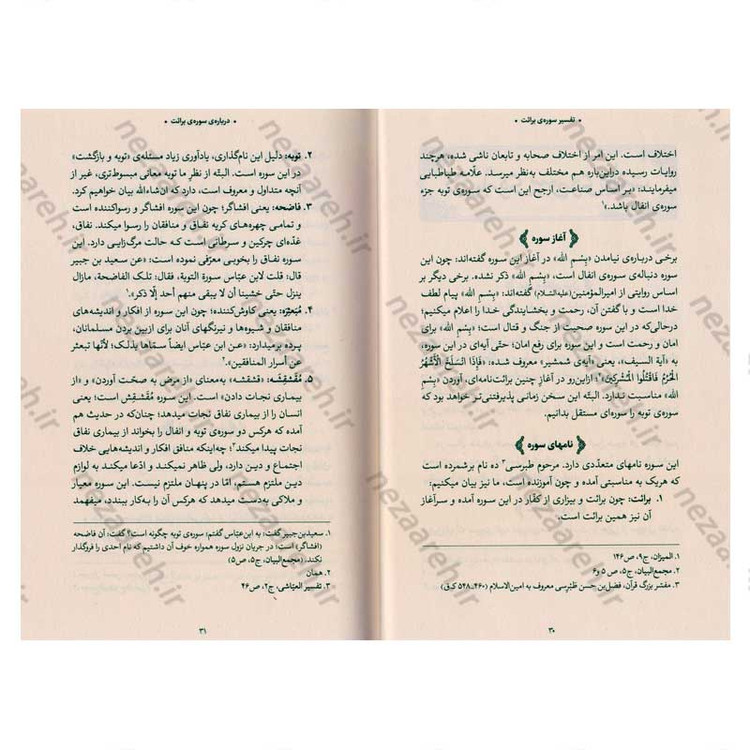 • تفسیر سوره‌ی برائت •
اختلاف است. این امر از اختلاف صحابه و تابعان ناشی شده، هرچند
روایات رسیده دراین‌باره هم مختلف به‌نظر میرسد. علّامه طباطبایی
میفرمایند: «بر اساس صناعت، ارجح این است که سوره‌ی توبه جزء
سوره‌ی انفال باشد.»۱
آغاز سوره
برخی درباره‌ی نیامدن «بِسْمِ الله» در آغاز این سوره گفته‌اند: چون این
سوره دنباله‌ی سوره‌ی انفال است، «بِسْمِ الله» ذکر نشده. برخی دیگر بر
اساس روایتی از امیرالمؤمنین(علیه‌السّلام) گفته‌اند: «بِسْمِ الله» پیام لطف
خدا است و با گفتن آن، رحمت و بخشایندگی خدا را اعلام میکنیم؛
درحالی‌که در این سوره صحبت از جنگ و قتال است؛ «بِسْمِ الله» برای
امان و رحمت است و این سوره برای رفع امان؛ حتّی آیه‌ای در این سوره،
به «آیة السیف»، یعنی «آیه‌ی شمشیر» معروف شده: «فَإِذَا انْسَلَخَ الْأَشْهُرُ
الْحُرُمُ فَاقْتُلُوا الْمُشْرِكِينَ»؛۲ ازاین‌رو در آغازِ چنین برائت‌نامه‌ای، آوردن «بِسْمِ
الله» مناسبت ندارد. البتّه این سخن زمانی پذیرفتنی‌تر خواهد بود که
سوره‌ی توبه را سوره‌ای مستقل بدانیم.
نامهای سوره
این سوره نامهای متعدّدی دارد. مرحوم طبرسی۳ ده نام برشمرده است
که هریک به مناسبتی آمده و چون آموزنده است، ما نیز بیان میکنیم:
۱. برائت: چون برائت و بیزاری از کفّار در این سوره آمده و سرآغاز
آن نیز همین برائت است.
۱. المیزان، ج۹، ص۱۴۶
۲. مجمع‌البیان، ج۵، ص ۵ و۶
۳. مفسّر بزرگ قرآن، فضل‌بن‌حسن طَبرِسی معروف به امین‌الاسلام (۴۶۰ـ۵۴۸ ق.ق)
۳۰
• درباره‌ی سوره‌ی برائت •
۲. توبه: دلیل این نام‌گذاری، یادآوری زیاد مسئله‌ی «توبه و بازگشت»
در این سوره است. البتّه از نظر ما توبه معانی مبسوط‌تری، غیر از
آنچه متداول و معروف است، دارد که ان‌شاءالله بیان خواهیم کرد.
۳. فاضحه: یعنی افشاگر؛ چون این سوره افشاگر و رسواکننده است
و تمامی چهره‌های کریه نفاق و منافقان را رسوا میکند. نفاق،
غدّه‌ای چرکین و سرطانی است که حالت مرگ‌زایی دارد. این
سوره نفاق را بخوبی معرّفی نموده است: «عن سعید بن جبیر
قال: قلت لابن عبّاس سورة التوبة، فقال: تلک الفاضحة، مازال
ینزل حتّی خشینا أن لا یبقی منهم أحد إلّا ذکر».۱
۴. مُبَعثِره: یعنی کاوش‌کننده؛ چون این سوره از افکار و اندیشه‌های
منافقان و شیوه‌ها و نیرنگهای آنان برای ازبین بردن مسلمانان،
پرده برمیدارد: «عن ابن عبّاس ایضاً سمّاها بذلک؛ لأنّها تبعثر
عن أسرار المنافقین».۲
۵. مُقَشقِشه: «قشقشه» به‌معنای «از مرض به صحّت آوردن» و «از
بیماری نجات دادن» است. این سوره مُقَشقِش است؛ یعنی
انسان را از بیماری نفاق نجات میدهد؛ چنان‌که در حدیث هم
آمده که هرکس دو سوره‌ی توبه و انفال را بخواند، از بیماری نفاق
نجات پیدا میکند؛۳ چه‌اینکه منافق افکار و اندیشه‌هایی خلاف
اجتماع و دین دارد، ولی ظاهر نمیکند و ادّعا میکند به لوازم
دین ملتزم هستم، امّا در پنهان ملتزم نیست. این سوره معیار
و ملاکی به‌دست میدهد که هرکس آن را به‌کار ببندد، میفهمد
۱. سعیدبن‌جبیر گفت: به ابن‌عبّاس گفتم: سوره‌ی توبه چگونه است؟ گفت: آن فاضحه
(افشاگر) است؛ در جریان نزول سوره همواره خوف آن داشتیم که نام احدی را فروگذار
نکند. (مجمع‌البیان، ج۵، ص۵)
۲. همان
۳. تفسیر العیّاشی، ج۲، ص۴۶
۳۱
nezaareh.ir